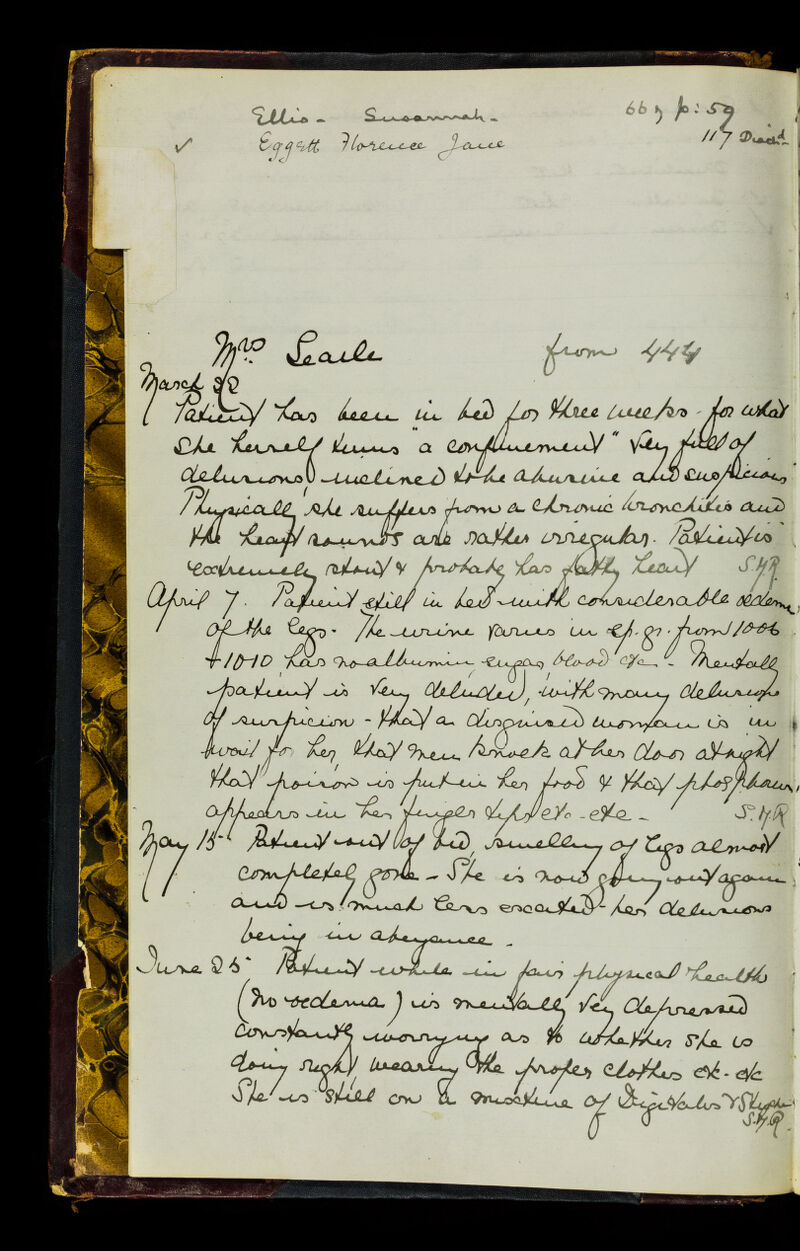 Ellis - Susannah - 667 p: 59
✓ Eggett Florence Jane 117 Disch^d
Mrs Searle from 444
March 22
Patient has been in bed for three weeks - for what
she herself terms "a confinement" Very full of
delusions, inclined to be abusive and suspicious
Physically she suffers from a chronic bronchitis and
the heart sounds are rather irregular. Patient is
extremely stout & probably has fatty heart S.H.R.
April 7. Patient still in bed with considerable oedema
of the legs - The urine varies in sp. gr. from 1006
+ 1010 has no albumin, sugar, blood etc - Mentally
patient is very deluded, with many delusions
of suspicion - that a disguised woman is in
wait for her, that men knock at her door at night
that poison is put in her food & that phosphorus
appears in her finger tips etc - etc - S.H.R
May 15 - Patient out of bed, swelling of legs almost
completely gone - She is now going out again
and is much less excited - her delusions
being in abeyance -
June 25 - Patient while in fair physical health
(no oedema) is mentally very depressed
constantly worrying as to whether she is
doing right, wearing the proper clothes etc - etc
She is still on a mixture of Digitalis &
S.H.R.